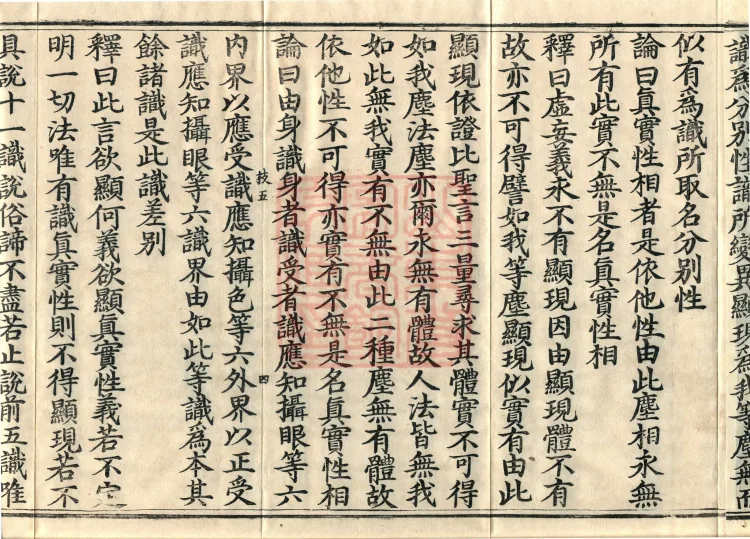 識為分別性識所變異顯現為我等塵無而
似有為識所取名分別性
論曰真實性相者是依他性由此塵相永無
所有此實不無是名真實性相
釋曰虛妄義永不有顯現因由顯現體不有
故亦不可得譬如我等塵顯現似實有由此
顯現依證比聖言三量尋求其體實不可得
如我塵法塵亦爾永無有體故人法皆無我
如此無我實有不無由此二種塵無有體故
依他性不可得亦實有不無是名真實性相
論曰由身識身者識受者識應知攝眼等六
内界以應受識應知攝色等六外界以正受
識應知攝眼等六識界由如此等識為本其
餘諸識是此識差別
釋曰此言欲顯何義欲顯真實性義若不定
明一切法唯有識真實性則不得顯現若不
具說十一識說俗諦不盡若止說前五識唯